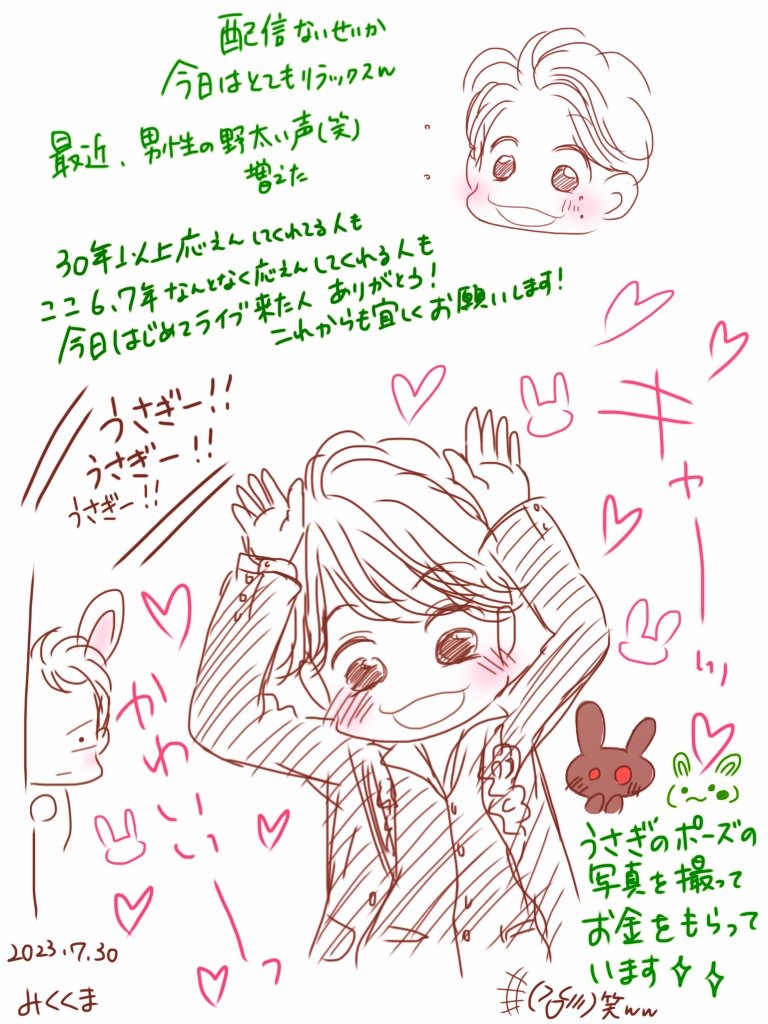 配信ないせいか
今日はとてもリラックスw
最近、男性の野太い声(笑)
増えた
30年以上応えんしてくれてる人も
ここ6、7年なんとなく応えんしてくれる人も
今日はじめてライブ来た人 ありがとう!
これからも宜しくお願いします!
うさぎー!!
うさぎー!!
うさぎー!!
キャーッ
かわいいーっ
うさぎのポーズの
写真を撮って
お金をもらって
います
笑ww
2023.7.30
みくくま